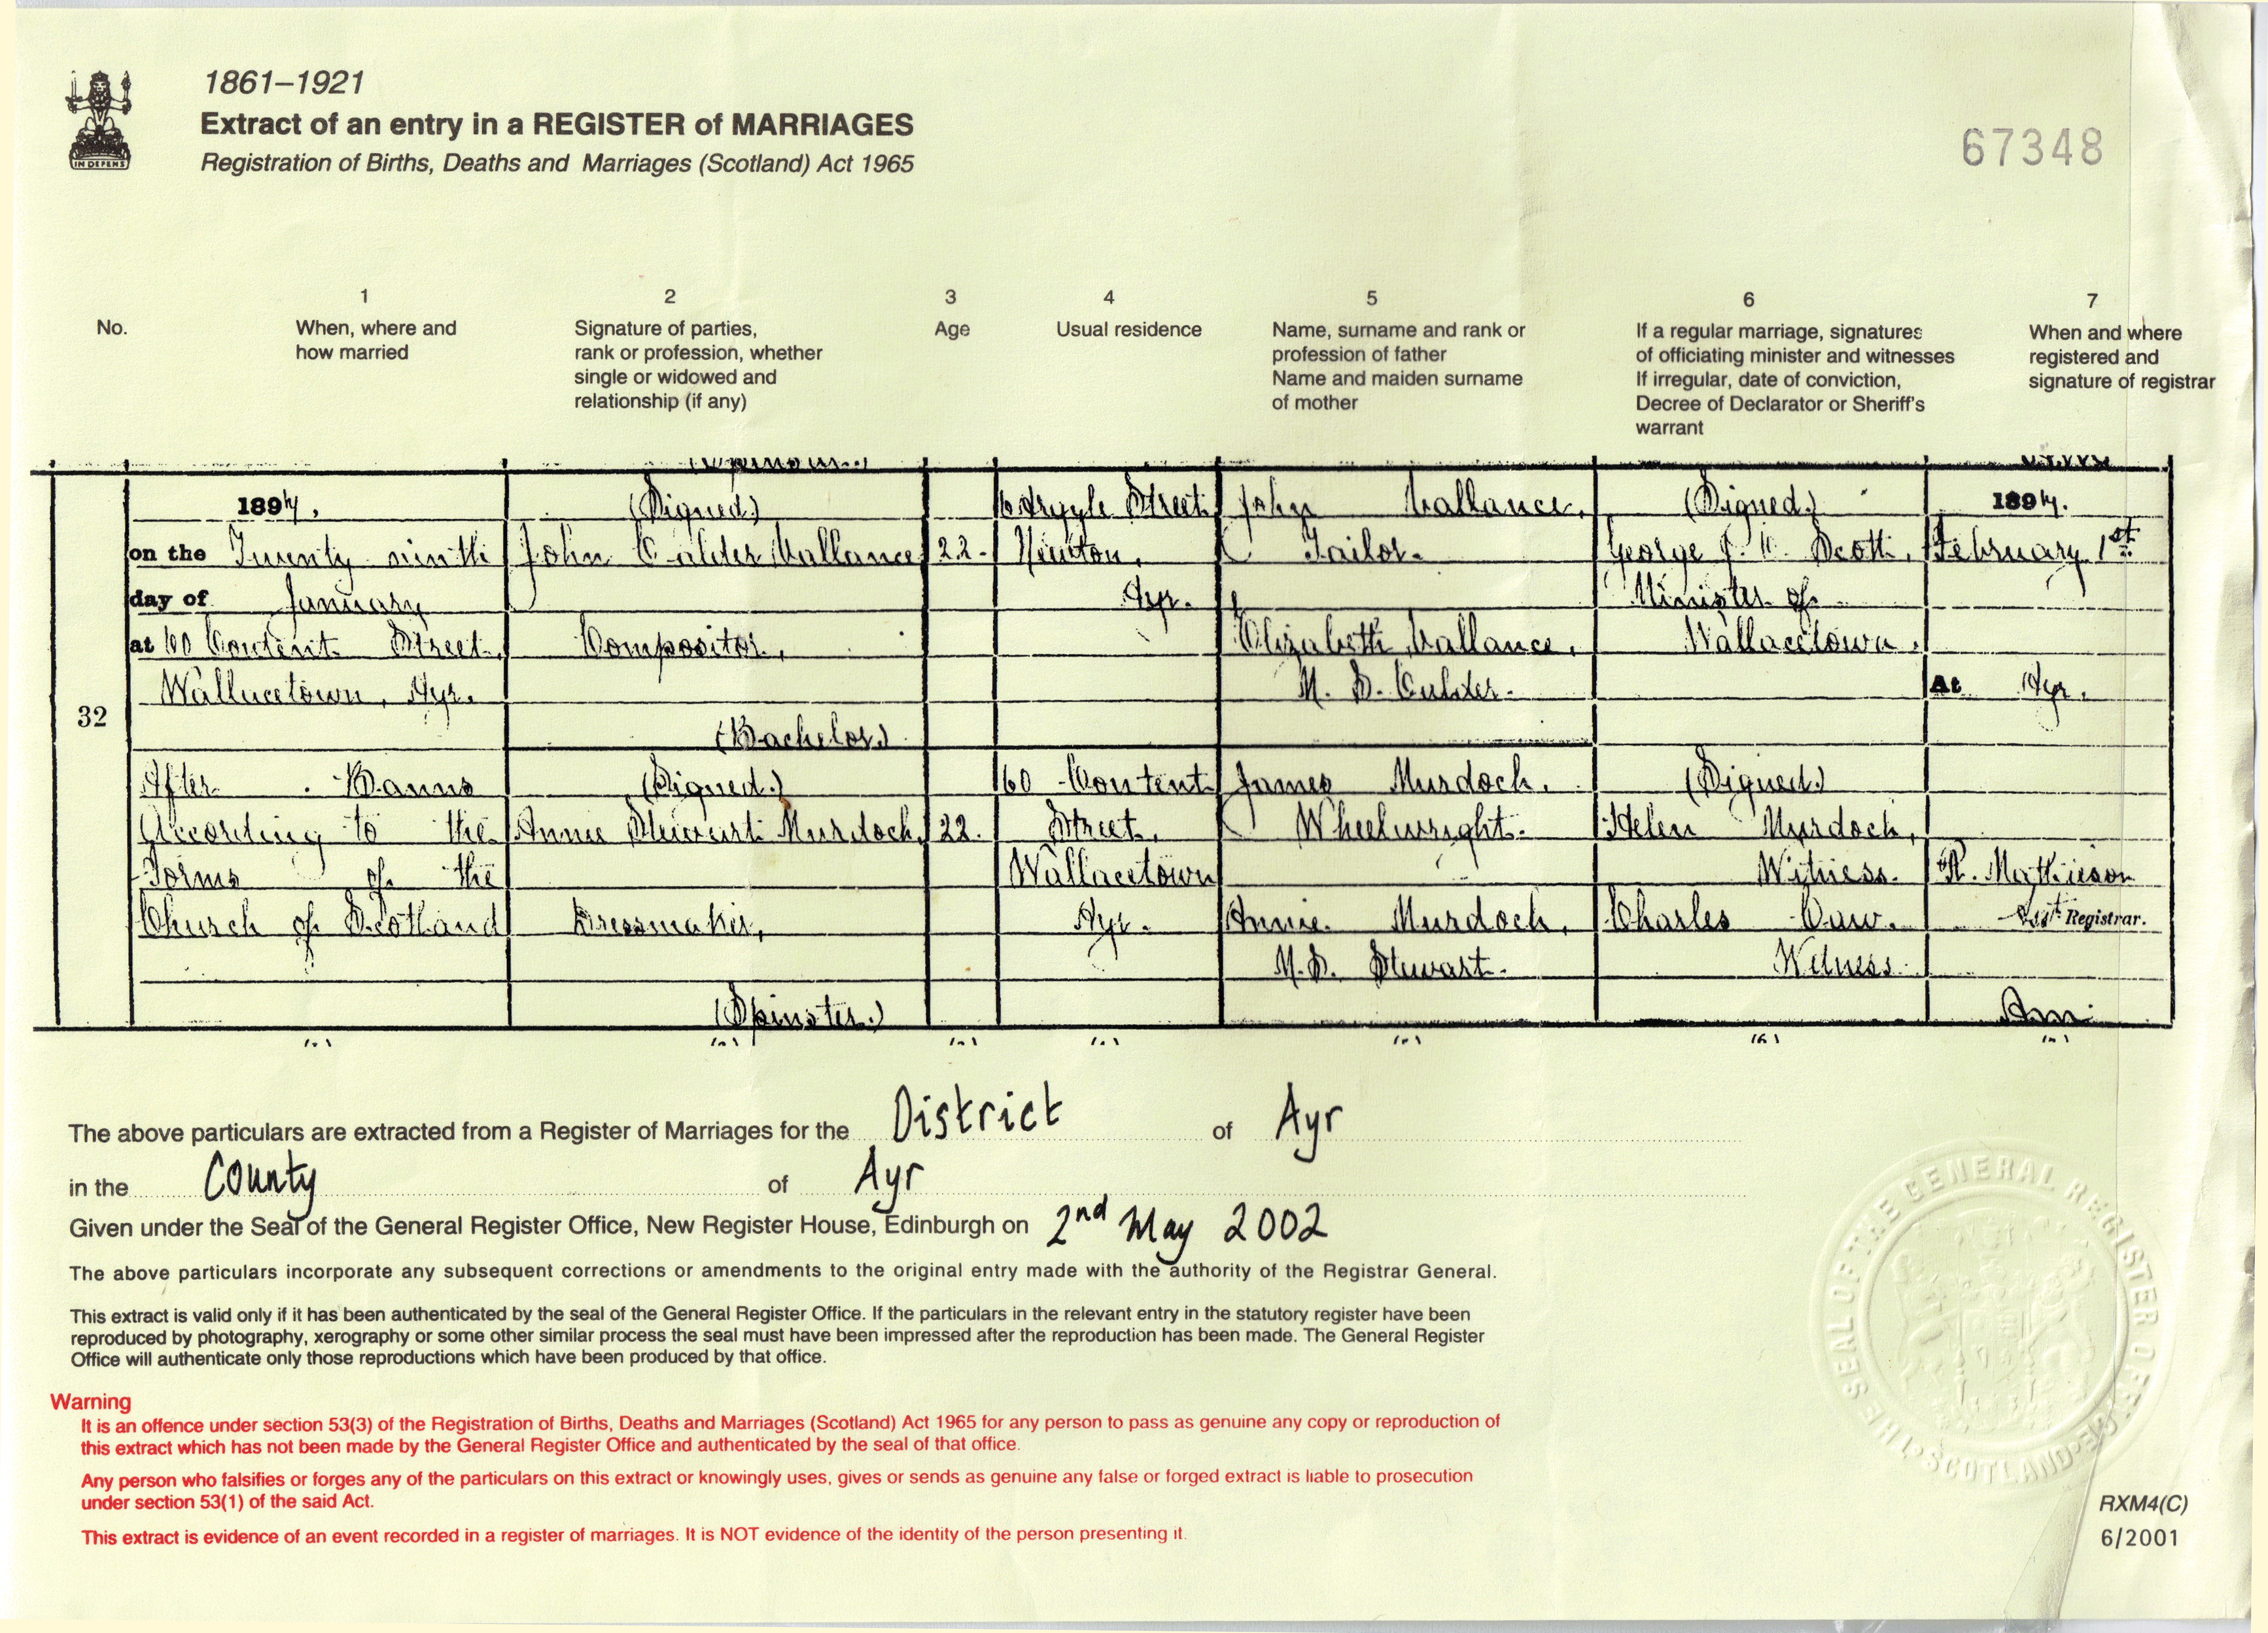 1861–1921
Extract of an entry in a REGISTER of MARRIAGES
Registration of Births, Deaths and Marriages (Scotland) Act 1965
IN DEFENS
67348
1 2 3 4 5 6 7
No.
When, where and
how married
Signature of parties,
rank or profession, whether
single or widowed and
relationship (if any)
Age
Usual residence
Name, surname and rank or
profession of father
Name and maiden surname
of mother
If a regular marriage, signatures
of officiating minister and witnesses
If irregular, date of conviction,
Decree of Declarator or Sheriff's
warrant
When and where
registered and
signature of registrar
32
1897.
on the Twenty ninth
day of January
at 60 Content Street,
Wallacetown, Ayr.
After Banns
According to the
Forms of the
Church of Scotland
(Signed)
John Calder Vallance
Compositor,
(Bachelor)
(Signed.)
Annie Stewart Murdoch,
Dressmaker,
(Spinster.)
22.
22.
Argyle Street
Newton,
Ayr.
60 Content
Street,
Wallacetown
Ayr.
John Vallance,
Tailor.
Elizabeth Vallance,
M.S. Calder.
James Murdoch,
Wheelwright.
Annie Murdoch,
M.S. Stewart.
(Signed.)
George Scott,
Minister of
Wallacetown.
(Signed)
Helen Murdoch,
Witness.
Charles Caw.
Witness.
1897.
February 1st
At Ayr.
R. Mathieson
Asst Registrar.
(6)
The above particulars are extracted from a Register of Marriages for the District of Ayr
in the County of Ayr
Given under the Seal of the General Register Office, New Register House, Edinburgh on 2nd May 2002
The above particulars incorporate any subsequent corrections or amendments to the original entry made with the authority of the Registrar General.
This extract is valid only if it has been authenticated by the seal of the General Register Office. If the particulars in the relevant entry in the statutory register have been
reproduced by photography, xerography or some other similar process the seal must have been impressed after the reproduction has been made. The General Register
Office will authenticate only those reproductions which have been produced by that office.
Warning
It is an offence under section 53(3) of the Registration of Births, Deaths and Marriages (Scotland) Act 1965 for any person to pass as genuine any copy or reproduction of
this extract which has not been made by the General Register Office and authenticated by the seal of that office.
Any person who falsifies or forges any of the particulars on this extract or knowingly uses, gives or sends as genuine any false or forged extract is liable to prosecution
under section 53(1) of the said Act.
This extract is evidence of an event recorded in a register of marriages. It is NOT evidence of the identity of the person presenting it.
THE SEAL OF THE GENERAL REGISTER OFFICE SCOTLAND
RXM4(C)
6/2001